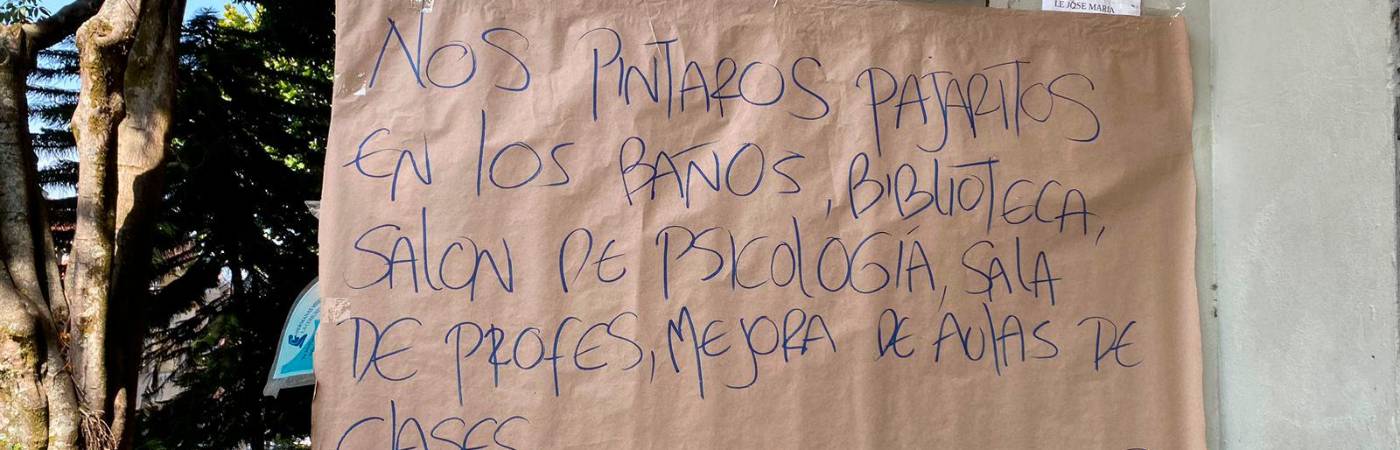 LE JOSE MARIA
NOS PINTAROS PAJARITOS
EN LOS BAÑOS, BIBLIOTECA,
SALON DE PSICOLOGÍA, SALA
DE PROFES, MEJORA DE AULAS DE
CLASES